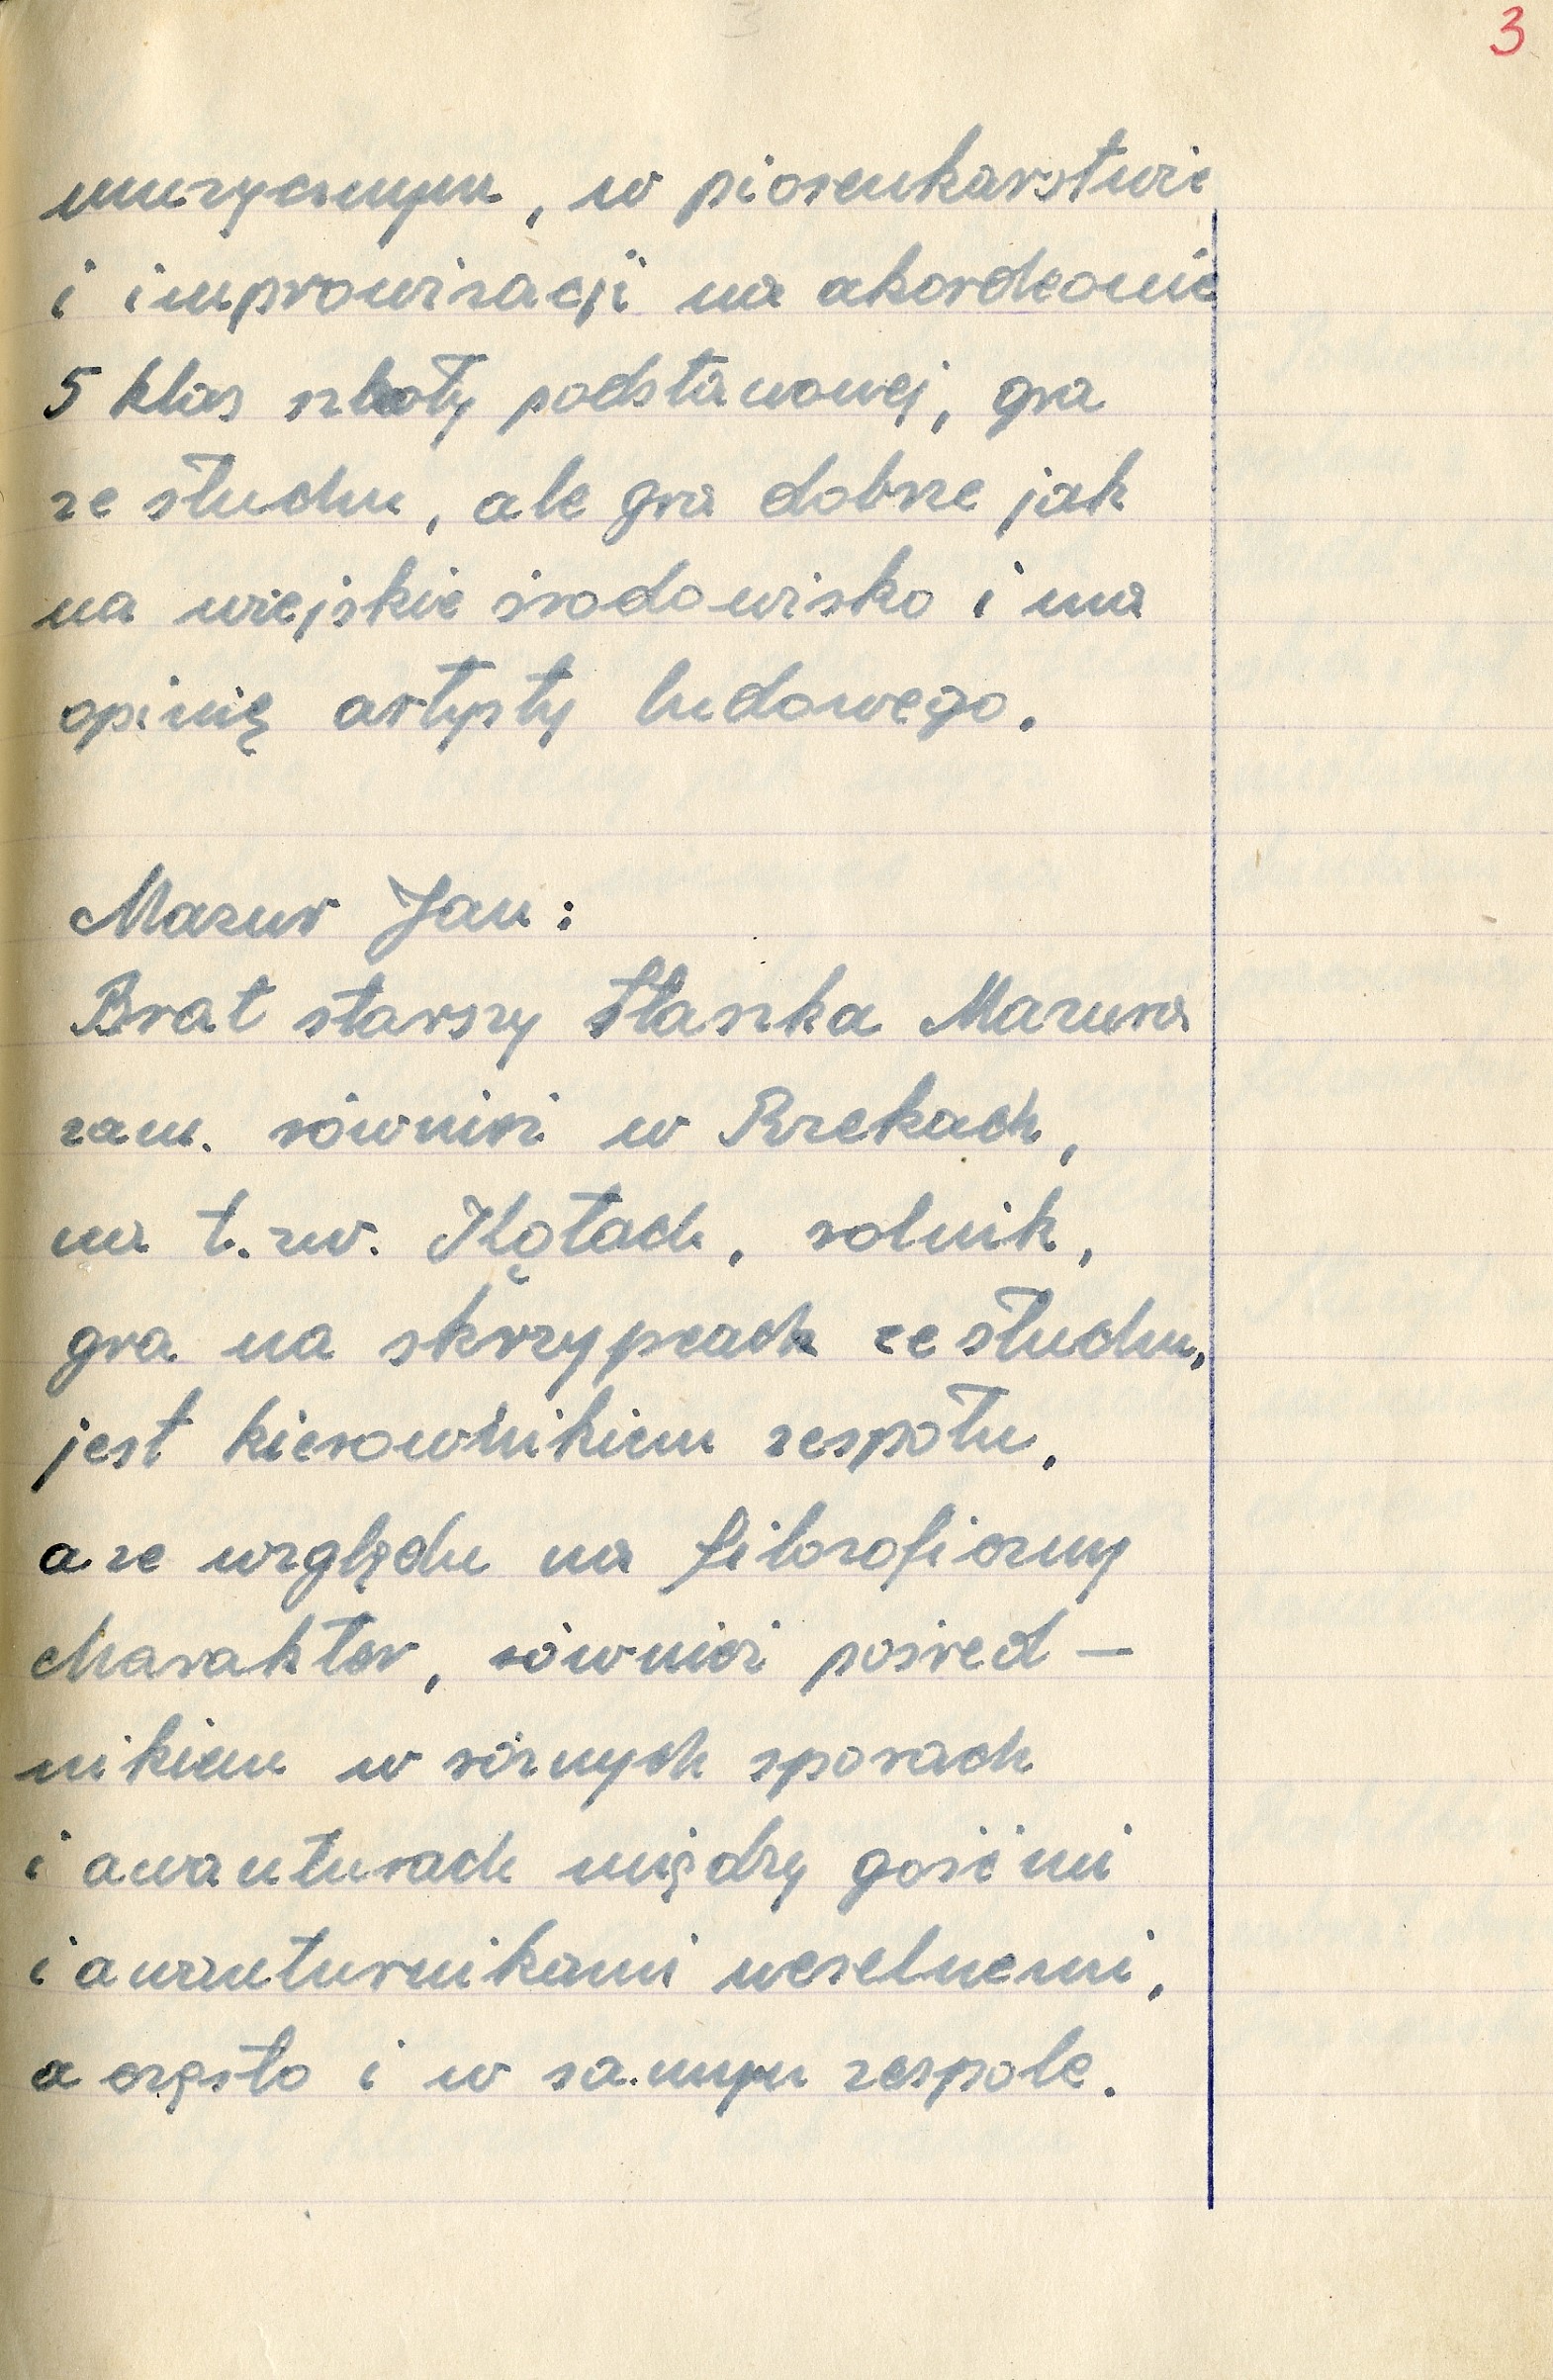 3
muzycznym, w piosenkarstwie
i improwizacji na akordeonie
5 klas szkoły podstawowej, gra
ze słuchu, ale gra dobrze jak
na wiejskie środowisko i ma
opinię artysty ludowego.
Mazur Jan:
Brat starszy Staszka Mazura
zam. również w Rzekach,
na t.zw. Kątach, rolnik,
gra na skrzypcach ze słuchu,
jest kierownikiem zespołu,
a ze względu na filozoficzny
charakter, również pośred–
nikiem w różnych sporach
i awanturach między gośćmi
i awanturnikami weselnemi,
a często i w samym zespole.